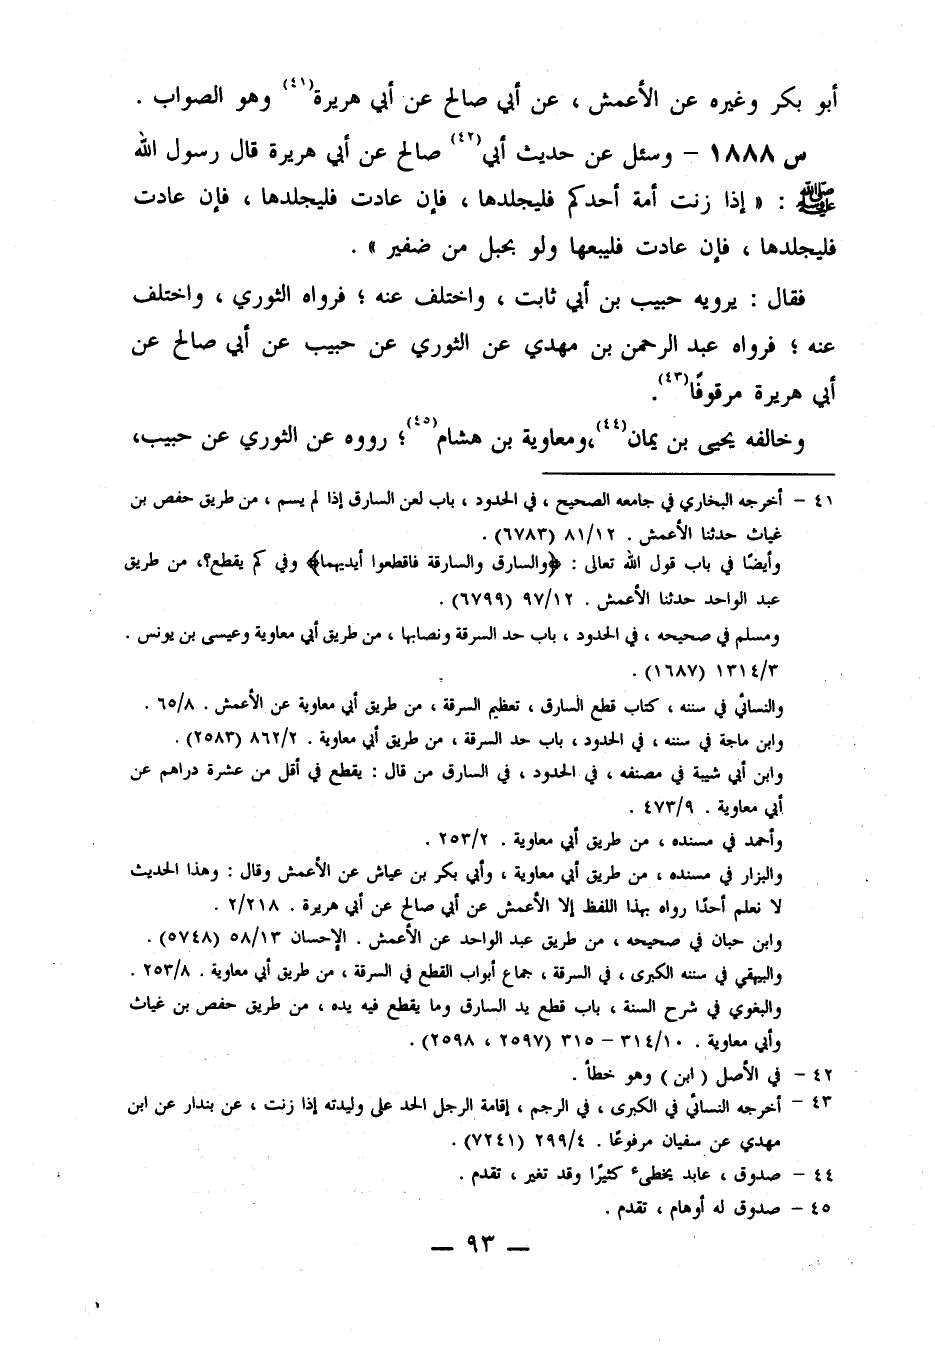 أبو بكر وغيره عن الأعمش ، عن أبي صالح عن أبي هريرة(٤١) وهو الصواب .
س ١٨٨٨ – وسئل عن حديث أبي(٤٢) صالح عن أبي هريرة قال رسول الله
ﷺ : « إذا زنت أمة أحدكم فليجلدها ، فإن عادت فليجلدها ، فإن عادت
فليجلدها ، فإن عادت فليبعها ولو بحبل من ضفير » .
فقال : يرويه حبيب بن أبي ثابت ، واختلف عنه ؛ فرواه الثوري ، واختلف
عنه ؛ فرواه عبد الرحمن بن مهدي عن الثوري عن حبيب عن أبي صالح عن
أبي هريرة مرقوفًا(٤٣).
وخالفه يحيى بن يمان(٤٤)،ومعاوية بن هشام(٤٥)؛ رووه عن الثوري عن حبيب،
٤١ – أخرجه البخاري في جامعه الصحيح ، في الحدود ، باب لعن السارق إذا لم يسم ، من طريق حفص بن
غياث حدثنا الأعمش . ٨١/١٢ (٦٧٨٣) .
وأيضًا في باب قول الله تعالى : ﴿والسارق والسارقة فاقطعوا أيديهما﴾ وفي كم يقطع؟، من طريق
عبد الواحد حدثنا الأعمش . ٩٧/١٢ (٦٧٩٩) .
ومسلم في صحيحه ، في الحدود ، باب حد السرقة ونصابها ، من طريق أبي معاوية وعيسى بن يونس .
١٣١٤/٣ (١٦٨٧) .
والنسائي في سننه ، كتاب قطع السارق ، تعظيم السرقة ، من طريق أبي معاوية عن الأعمش . ٦٥/٨ .
وابن ماجة في سننه ، في الحدود ، باب حد السرقة ، من طريق أبي معاوية . ٨٦٢/٢ (٢٥٨٣) .
وابن أبي شيبة في مصنفه ، في الحدود ، في السارق من قال : يقطع في أقل من عشرة دراهم عن
أبي معاوية . ٤٧٣/٩ .
وأحمد في مسنده ، من طريق أبي معاوية . ٢٥٣/٢ .
والبزار في مسنده ، من طريق أبي معاوية ، وأبي بكر بن عياش عن الأعمش وقال : وهذا الحديث
لا نعلم أحدًا رواه بهذا اللفظ إلا الأعمش عن أبي صالح عن أبي هريرة . ٢/٢١٨ .
وابن حبان في صحيحه ، من طريق عبد الواحد عن الأعمش . الإحسان ٥٨/١٣ (٥٧٤٨) .
والبيهقي في سننه الكبرى ، في السرقة ، جماع أبواب القطع في السرقة ، من طريق أبي معاوية . ٢٥٣/٨ .
والبغوي في شرح السنة ، باب قطع يد السارق وما يقطع فيه يده ، من طريق حفص بن غياث
وأبي معاوية . ٣١٤/١٠ – ٣١٥ (٢٥٩٧ ، ٢٥٩٨) .
٤٢ – في الأصل ( ابن ) وهو خطأ .
٤٣ – أخرجه النسائي في الكبرى ، في الرجم ، إقامة الرجل الحد على وليدته إذا زنت ، عن بندار عن ابن
مهدي عن سفيان مرفوعًا . ٢٩٩/٤ (٧٢٤١) .
٤٤ – صدوق ، عابد يخطىء كثيرًا وقد تغير ، تقدم .
٤٥ – صدوق له أوهام ، تقدم .
— ٩٣ —